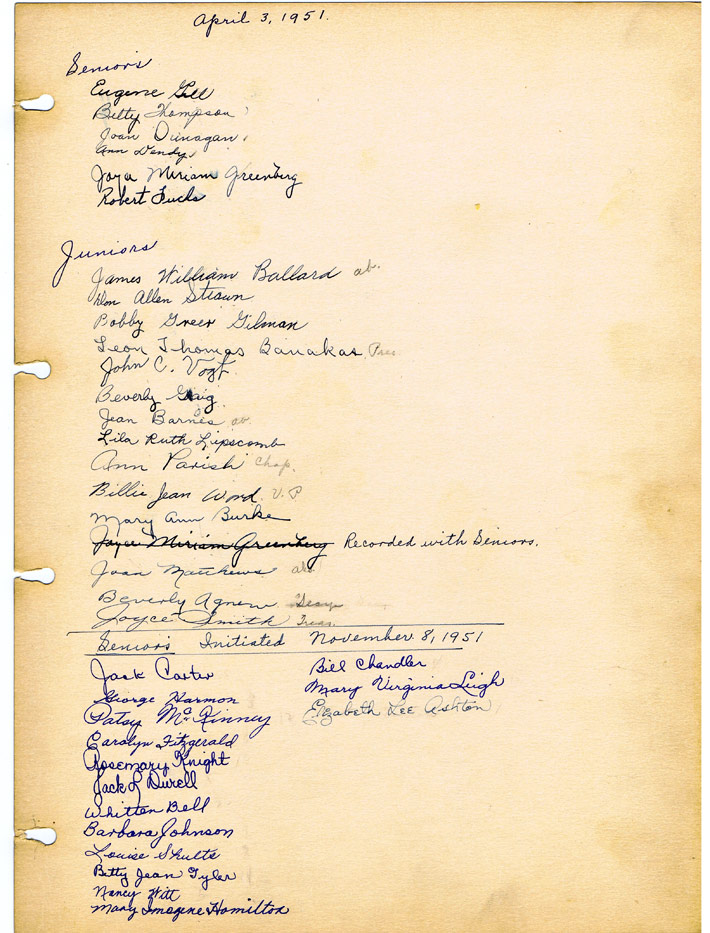 April 3, 1951.
Seniors
Eugene Gill
Betty Thompson
Joan Dunagan
Ann Dendy
Joya Miriam Greenberg
Robert Fuchs
Juniors
James William Ballard ab.
Don Allen Strawn
Bobby Greer Gilman
Leon Thomas Banakas Pres
John C. Vogt
Beverly Craig
Jean Barnes ab.
Lila Ruth Lipscomb
Ann Parish Chap.
Billie Jean Word V.P
Mary Ann Burke
Joyce Miriam Greenberg Recorded with Seniors.
Joan Matthews ab.
Beverly Agnew
Joyce Smith Treas.
Seniors Initiated November 8, 1951
Jack Carter
George Harmon
Patsy McKinney
Carolyn Fitzgerald
Rosemary Knight
Jack L Durell
Whitten Bell
Barbara Johnson
Louise Shults
Betty Jean Tyler
Nancy Witt
Mary Imogene Hamilton
Bill Chandler
Mary Virginia Leigh
Elizabeth Lee Ashton